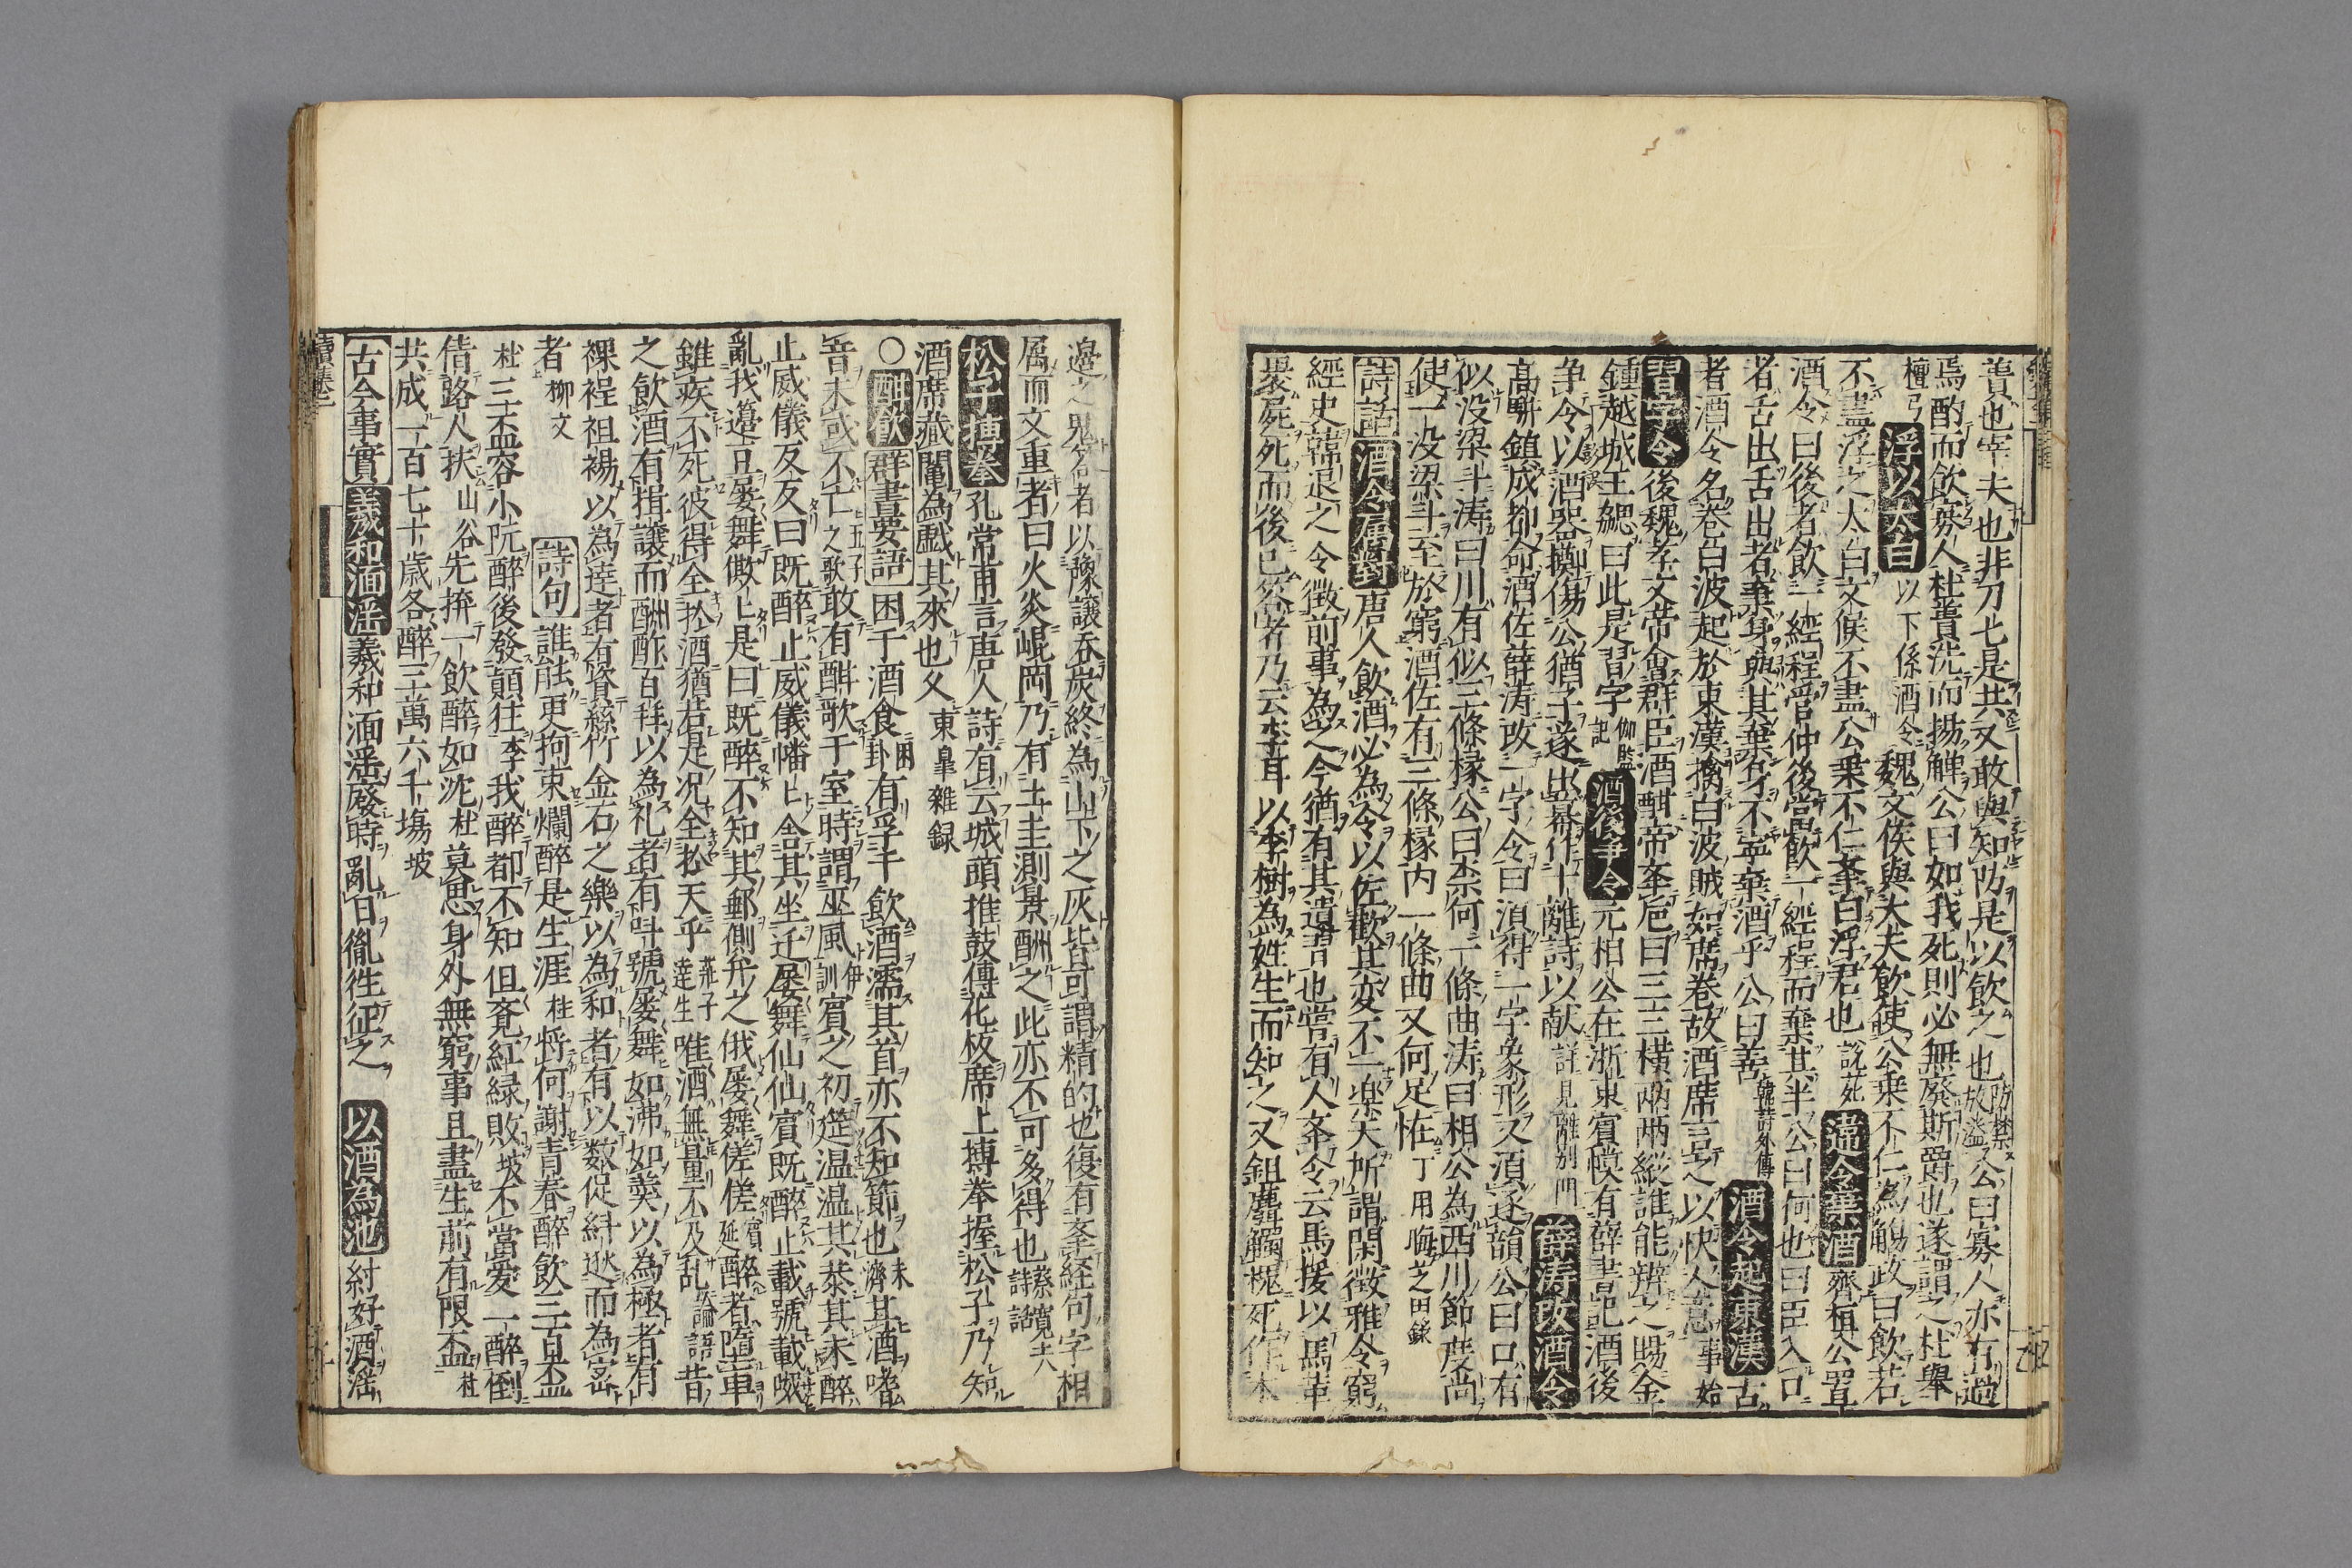 蕢也宰夫也非刀匕是共又敢與知防是以飲之也防禁放溢公曰寡人亦有過
焉酌而飲寡人杜蕢洗而揚觶公曰如我死則必無廢斯爵也遂謂之杜舉
檀弓 浮以大白 以下係酒令 魏文侯與大夫飲使公乗不仁為觴政曰飲若
不盡浮之大白文侯不盡公乗不仁奉白浮君也 說苑 違令棄酒 齊桓公置
酒令曰後者飲一經程管仲後當飲一經程而棄其半公曰何也曰臣入口
者舌出舌出者棄身與其棄身不寧棄酒乎 公曰善 韓詩外傳 酒令起東漢 古
者酒令名卷白波起於東漢擒白波賊如席卷故酒席言之以快人意 事始
習字令 後魏孝文帝會群臣酒酣帝奉巵曰三三橫兩兩縱誰能辨之賜金
鍾越城王勰曰此是習字 伽藍記 酒後争令 元相公在浙東賓幙有薛書記酒後
争令以酒器擲傷公猶子遂出幕作十離詩以献 註見離別門 薛涛改酒令
高駢鎮成都命酒佐薛涛改一字令曰湏得一字象形又湏逐韻公曰口有
似没梁斗涛曰川有似三條椽公曰柰何一條曲涛曰相公為西川節度尚
使一没梁斗至於窮酒佐有三條椽内一條曲又何足怪 丁用晦芝田録
詩話 酒令属對 唐人飲酒必為令以佐歡其変不一楽天所謂閑徵雅令窮
經史韓退之令徵前事為之今猶有其遺習也嘗有人条令云馬援以馬革
褁屍死而後已答者乃云李耳以李樹為姓生而知之又鉏麑觸槐死作木
邊之鬼答者以豫讓吞炭終為山下之灰皆可謂精的也復有奉経句字相
属而文重者曰火炎崐岡乃有土圭測景酬之此亦不可多得也 蔡寛夫詩話
松子搏拳 孔常甫言唐人詩有云城頭推鼓傳花枝席上搏拳握松子乃知
酒席藏鬮為戯其來也久 東皐雜録
〇酣飲 群書要語 困于酒食 困卦 有孚于飲酒濡其首亦不知節也 未濟 其酒嗜
音未或不亡 五子之歌 敢有酣歌于室時謂巫風 伊訓 賓之初筵温温其恭其未醉
止威儀反反曰既醉止威儀幡幡舎其坐迁屡舞仙仙賓既醉止載號載呶
亂我籩豆屡舞僛僛是曰既醉不知其郵側弁之俄屡舞傞傞 賓延 醉者墮車
雖疾不死彼得全扵酒猶若是况全扵天乎 荘子達生 唯酒無量不及乱 論語 昔
之飲酒有揖讓而酬酢百拜以為礼者有呌號屡舞如沸如羹以為極者有
裸裎袒裼以為達者有資絲竹金石之樂以為和者有以数促糾逖而為宻
者 柳文 詩句 誰能更拘束爛醉是生涯 杜 将何謝青春醉飲三百盃
杜 三盃容小阮醉後發顛狂 李 我醉都不知但覓紅緑敗 坡 不當愛一醉倒
倩路人扶 山谷 先捹一飲醉如泥 杜 莫思身外無窮事且盡生前有限盃 杜
共成一百七十歳各醉三萬六千塲 坡
古今事實 羲和湎淫 羲和湎淫廢時亂日胤徃征之 以酒為池 紂好酒滛